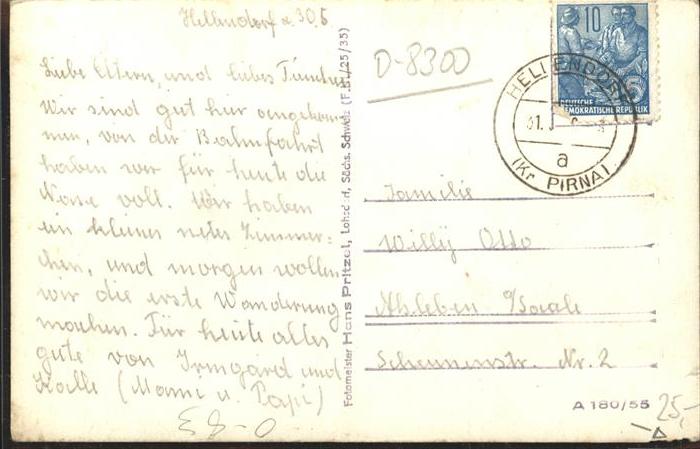 Hellendorf d. 30.5
Liebe Eltern, und liebes
Wir sind gut hier angekom-
men, von der Bahnfahrt
haben wir für heute die
Nase voll. Wir haben
ein kleines nettes Zimmer-
chen, und morgen wollen
wir die erste Wanderung
machen. Für heute alles
gute von Irmgard und
Kalle (Mami u. Papi)
0-83
Fotomeister Hans Pritzel, Lohsdorf, Sächs. Schweiz (F.B./25/35)
D-8300
10
DEUTSCHE
DEMOKRATISCHE REPUBLIK
HELLENDORF
a
(Kr. PIRNA)
Familie
Willy Otto
Alsleben/Saale
Scheunenstr. Nr. 2
A 180/55
25,-